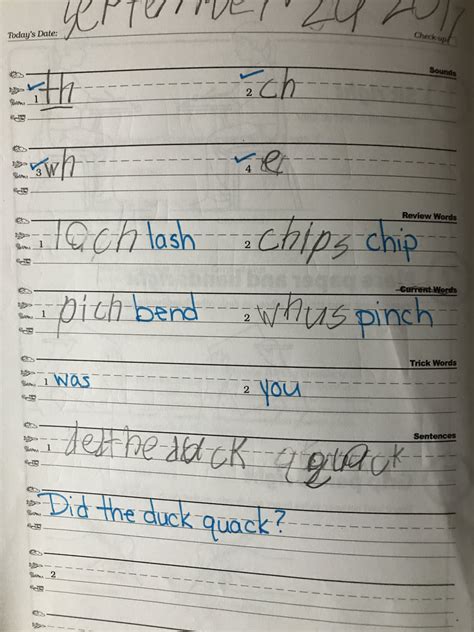 September 29 2017
Today's Date: Check-up
Sounds
1 th 2 ch
3 wh 4 e
Review Words
1 lach lash 2 chips chip
Current Words
1 pich bend 2 whus pinch
Trick Words
1 was 2 you
Sentences
1 duck quack
Did the duck quack?
2